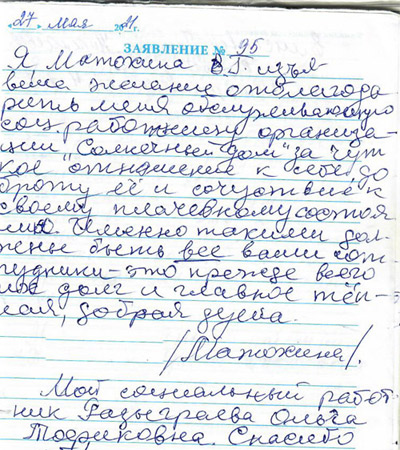 27 Мая 2011г.
ЗАЯВЛЕНИЕ № 95
Я Матохина В.Г. изъя-
вила желание отблагода
рить меня обслуживающую
соц работницу организа-
ции "Солнечный дом" за чут
кое отношение к себе, до
броту её и сочуствие к
своему плачевному состоя
нию. Именно такими дол-
жены быть все ваши сот
рудники - это прежде всего
их долг и главное тёп-
лая, добрая душа.
/Матохина/.
Мой социальный работ
ник Разыграева Ольга
Спасибо